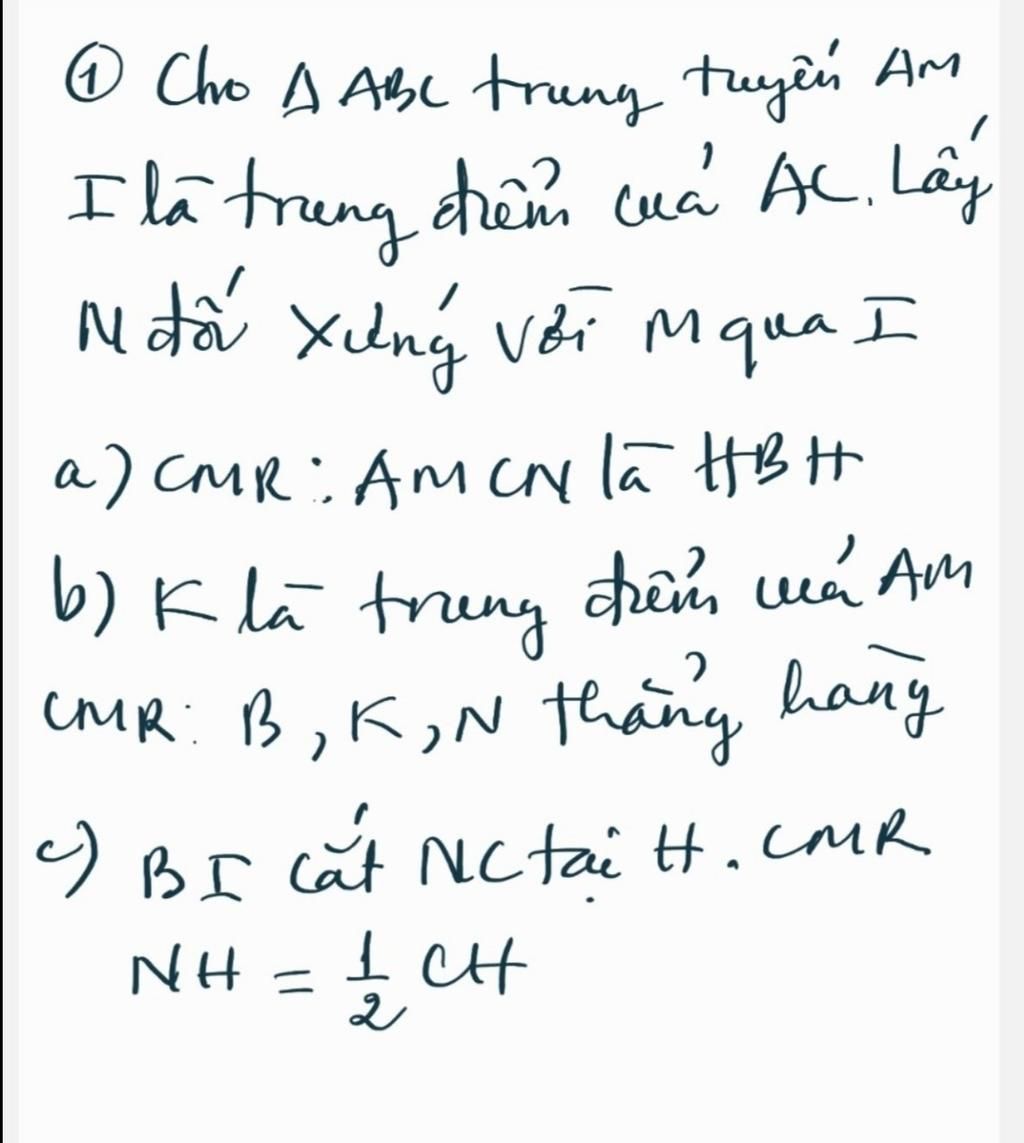 ① Cho Δ ABC trung tuyến AM
I là trung điểm của AC. Lấy
N đối xứng với M qua I
a) CMR: AMCN là HBH
b) K là trung điểm của AM
CMR: B, K, N thẳng hàng
c) BI cắt NC tại H. CMR
NH = 1/2 CH